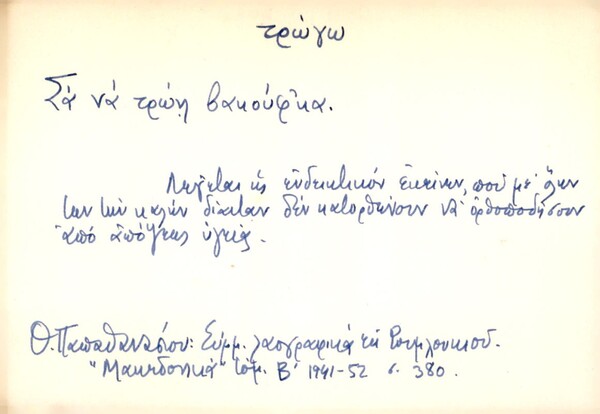 τρώγω
Σά νά τρώῃ βακούφ'κα.
Λέγεται ὡς ἐνδεικτικόν ἐκείνων, πού μέ ὅλην
των τήν καλήν δίαιταν δέν κατορθώνουν νά ὀρθοποδήσουν
ἀπό ἀπόψεως ὑγείας.
Θ. Παπαθανασίου: Σύμμ. λαογραφικά ἐκ Ρουμλουκιοῦ.
"Μακεδονικά" τόμ. Β' 1941-52 σ. 380.